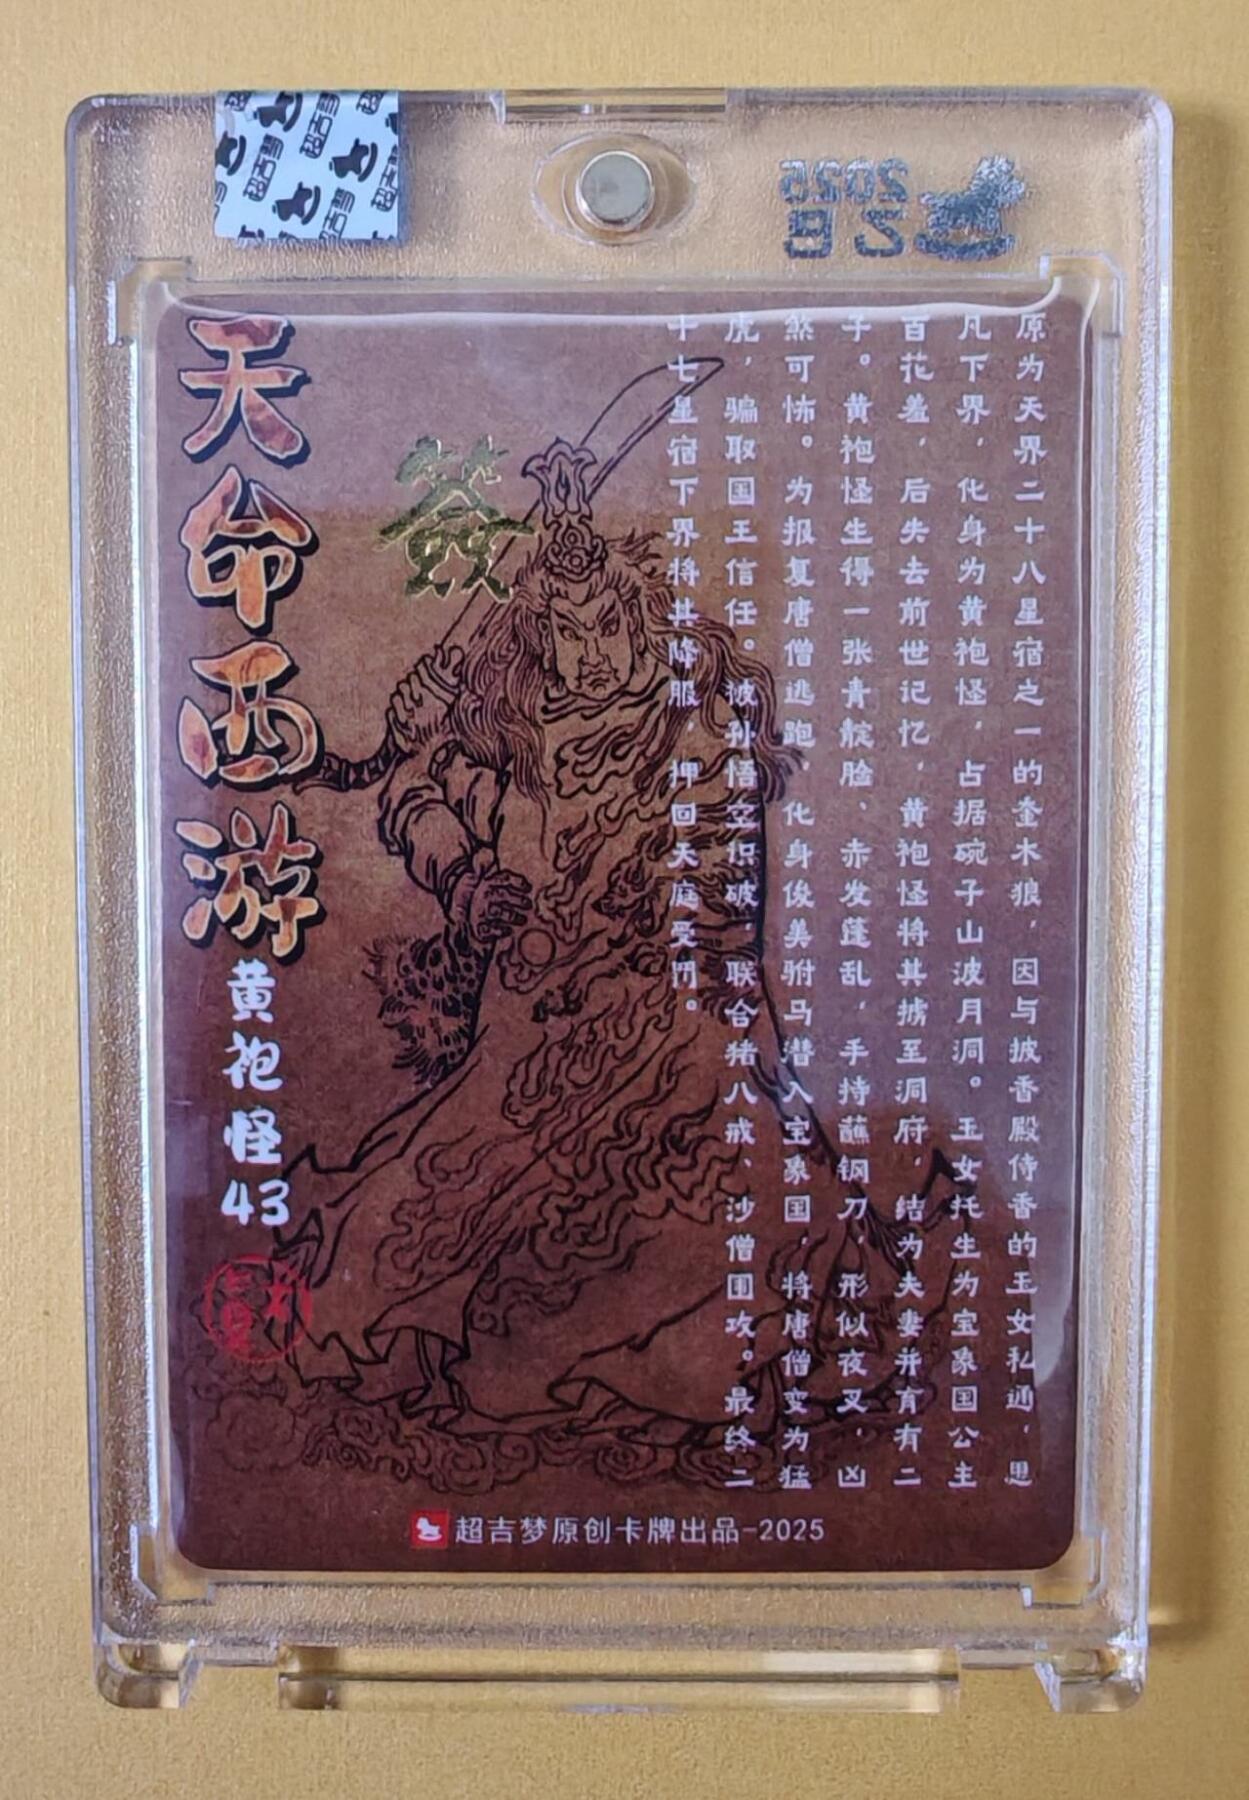 原为天界二十八星宿之一的奎木狼，因与披香殿侍香的玉女私通，思
凡下界，化身为黄袍怪，占据碗子山波月洞。玉女托生为宝象国公主
百花羞，后失去前世记忆，黄袍怪将其掳至洞府，结为夫妻并育有二
子。黄袍怪生得一张青靛脸、赤发蓬乱，手持蘸钢刀，形似夜叉，凶
煞可怖。为报复唐僧逃跑，化身俊美驸马潜入宝象国，将唐僧变为猛
虎，骗取国王信任。被孙悟空识破，联合猪八戒、沙僧围攻。最终二
十七星宿下界将其降服，押回天庭受罚。
簽
天命西游
黄袍怪43
超吉梦原创卡牌出品-2025
2025
超吉梦